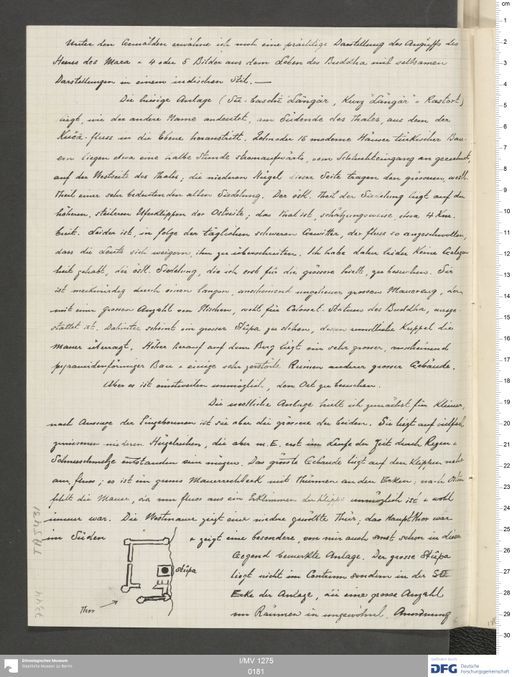 Unter den Gemälden erwähne ich noch eine prächtige Darstellung des Angriffs des
Heeres des Mara + 4 oder 5 Bilder aus dem Leben des Buddha mit seltsamen
Darstellungen in einem indischen Stil. —
Die hiesige Anlage (Su-bashi Längär, kurz "Längär" = Rastort)
liegt, wie der andere Name andeutet, am Südende des Thales, aus dem der
Kučā-fluss in die Ebene heraustritt. Zehn oder 15 moderne Häuser türkischer Bau-
ern liegen etwa eine halbe Stunde stromaufwärts, vom Schluchteingang an gerechnet,
auf der Westseite des Thales, die niederen Hügel dieser Seite tragen den grösseren, westl.
Theil einer sehr bedeutenden alten Siedelung. Der östl. Theil der Siedelung liegt auf den
höheren, steileren Uferklippen der Ostseite; das Thal ist, schätzungsweise, etwa 4 Km.
breit. Leider ist, in folge der täglichen schweren Gewitter, der fluss so angeschwollen,
dass die Leute sich weigern, ihn zu überschreiten. Ich habe daher leider keine Gelegen
heit gehabt, die östl. Siedelung, die ich erst für die grössere hielt, zu besuchen. Sie
ist merkwürdig durch einen langen, anscheinend ungeheuer grossen Mauerzug, der
mit einer grossen Anzahl von Nischen, wohl für Colossal-Statuen des Buddha, ausge
stattet ist. Dahinter scheint ein grosser Stūpa zu stehen, dessen rundliche Kuppel die
Mauer überragt. Höher herauf auf dem Berg liegt ein sehr grosser, anscheinend
pyramidenförmiger Bau + einige sehr zerstörte Ruinen anderer grosser Gebäude.
Aber es ist einstweilen unmöglich, den Ort zu besuchen.
Die westliche Anlage hielt ich zunächst für kleiner,
nach Aussage der Eingeborenen ist sie aber die grössere der beiden. Sie liegt auf vielfach
zerrissenen niederen Hügelreihen, die aber m. E. erst im Laufe der Zeit durch Regen +
Schneeschmelze entstanden sein mögen. Das grösste Gebäude liegt auf den Klippen nahe
am fluss; es ist ein grosses Mauerrechteck mit Thürmen an den Ecken; nach Osten
fehlt die Mauer, da vom fluss aus ein Erklimmen der Klippe unmöglich ist + wohl
immer war. Die Westmauer zeigt eine niedere gewölbte Thür, das Hauptthor war
im Süden + zeigt eine besondere, von mir auch sonst schon in dieser
Gegend bemerkte Anlage. Der grosse Stūpa
liegt nicht im Centrum sondern in der SE
Ecke der Anlage, die eine grosse Anzahl
von Räumen in ungewöhnl. Anordnung
Stūpa
Thor
TA 5431
Ethnologisches Museum
Staatliche Museen zu Berlin
I/MV 1275
0181
Gefördert durch
DFG Deutsche
Forschungsgemeinschaft
cm
0
1
2
3
4
5
6
7
8
9
10
11
12
13
14
15
16
17
18
19
20
21
22
23
24
25
26
27
28
29
30